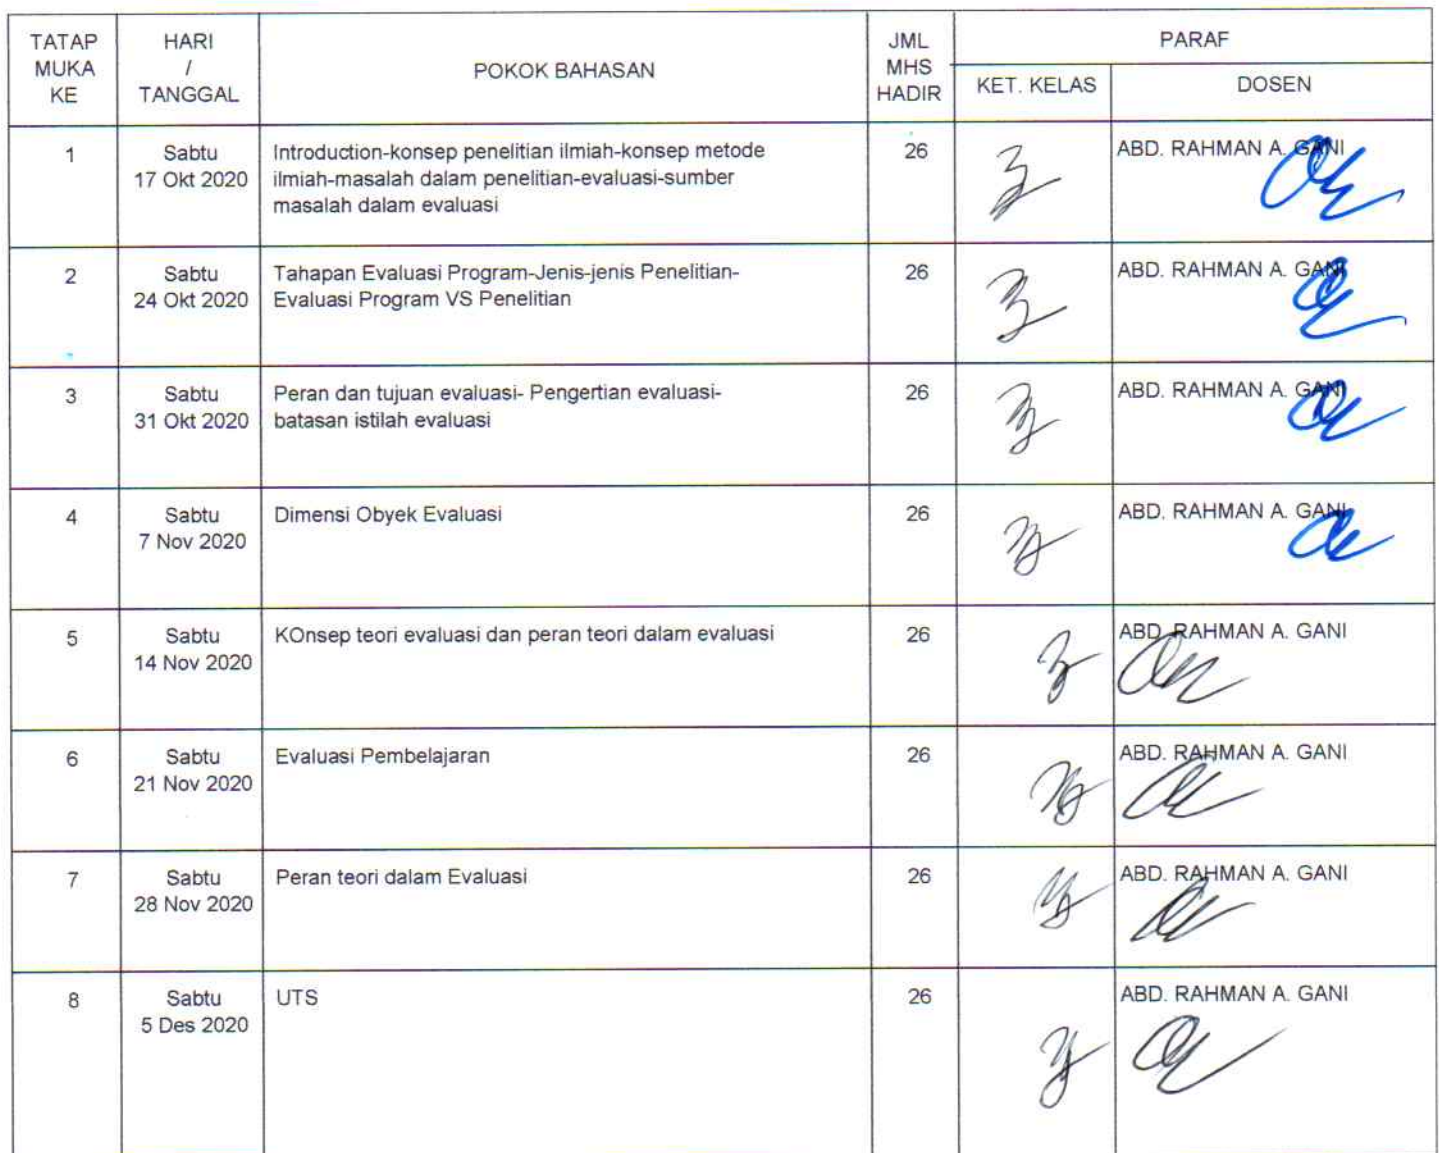 TATAP
MUKA
KE
HARI
/
TANGGAL
POKOK BAHASAN
JML
MHS
HADIR
PARAF
KET. KELAS
DOSEN
1
Sabtu
17 Okt 2020
Introduction-konsep penelitian ilmiah-konsep metode
ilmiah-masalah dalam penelitian-evaluasi-sumber
masalah dalam evaluasi
26
ABD. RAHMAN A. GANI
2
Sabtu
24 Okt 2020
Tahapan Evaluasi Program-Jenis-jenis Penelitian-
Evaluasi Program VS Penelitian
26
ABD. RAHMAN A. GANI
3
Sabtu
31 Okt 2020
Peran dan tujuan evaluasi- Pengertian evaluasi-
batasan istilah evaluasi
26
ABD. RAHMAN A. GANI
4
Sabtu
7 Nov 2020
Dimensi Obyek Evaluasi
26
ABD. RAHMAN A. GANI
5
Sabtu
14 Nov 2020
KOnsep teori evaluasi dan peran teori dalam evaluasi
26
ABD. RAHMAN A. GANI
6
Sabtu
21 Nov 2020
Evaluasi Pembelajaran
26
ABD. RAHMAN A. GANI
7
Sabtu
28 Nov 2020
Peran teori dalam Evaluasi
26
ABD. RAHMAN A. GANI
8
Sabtu
5 Des 2020
UTS
26
ABD. RAHMAN A. GANI